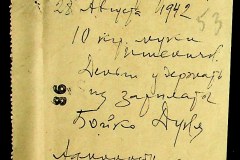 28 Августа 1942
53
10 кгр. муки
Деньги удержать
86
из зарплаты
Бойко Дуня